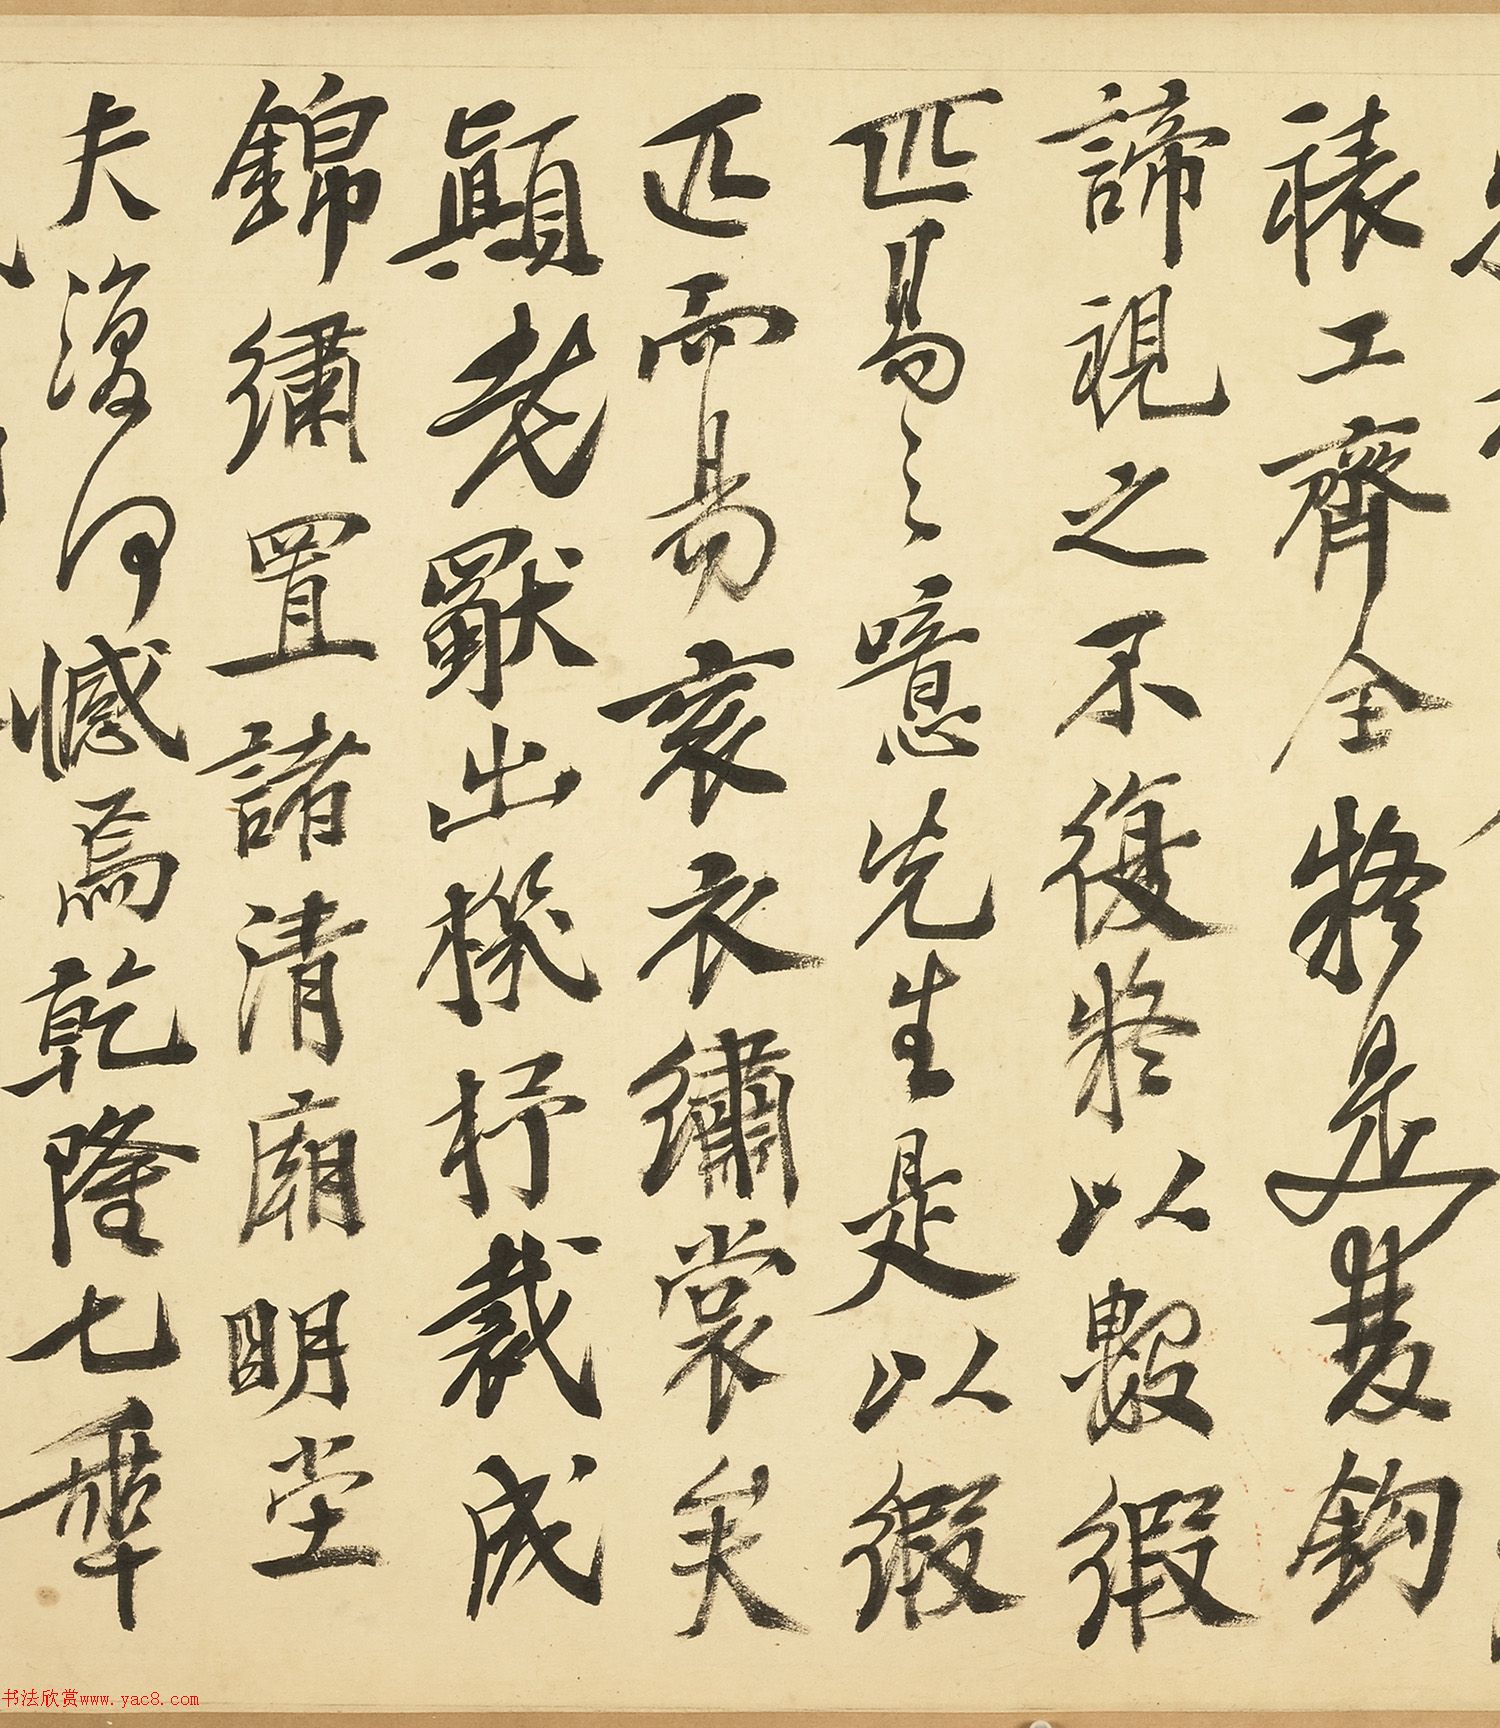 裱工齊全將是雙鉤
諦視之不復將以數縀
匹易之噫先生是以縀
匹而易袞衣繡裳矣
顛老獸出機抒裁成
錦繡置諸清廟明堂
夫復何憾焉乾隆七年
书法欣赏www.yac8.com